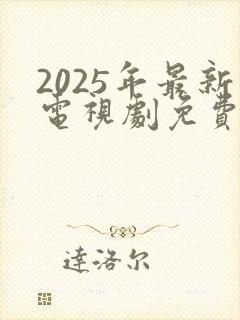 2025年最新
電視劇免費
達洛尔